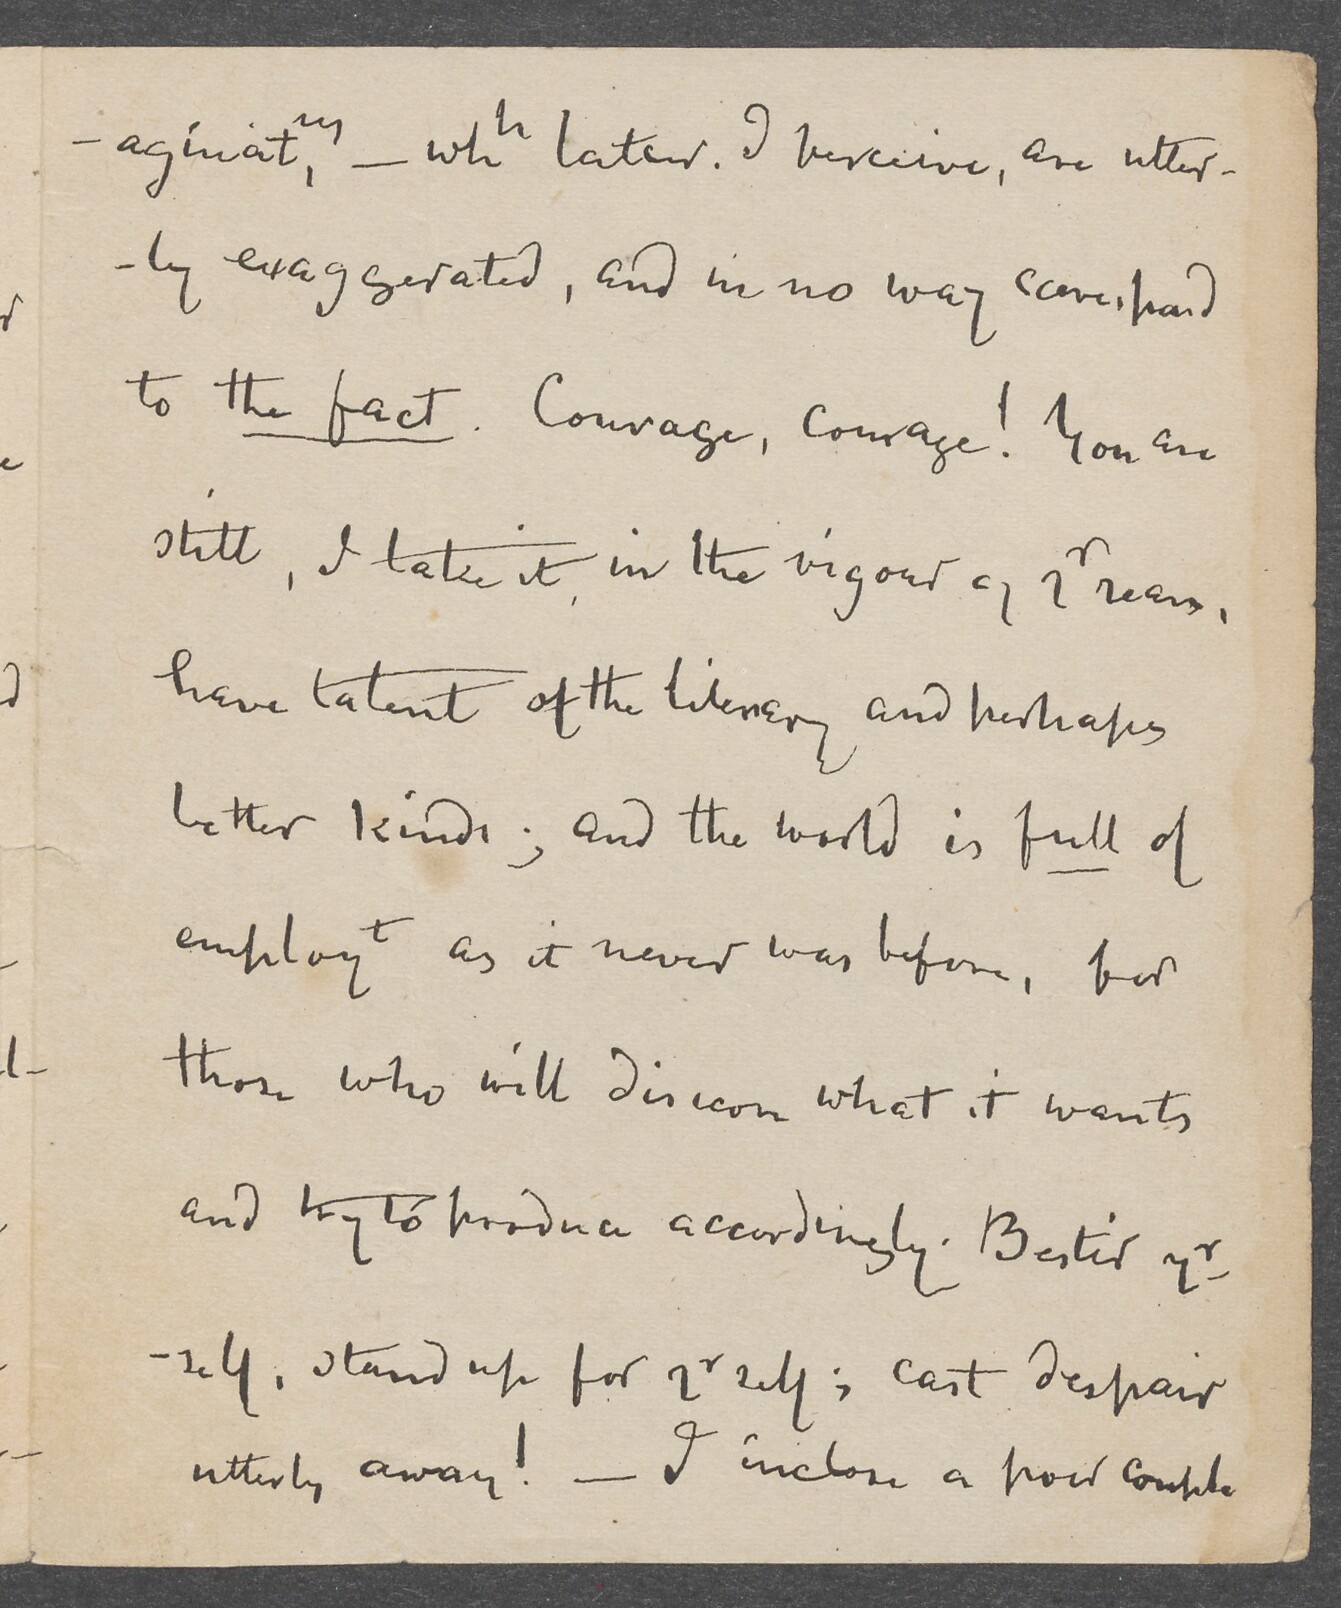 -aginatns, — whh latter, I perceive, are utter-
-ly exaggerated, and in no way correspond
to the fact. Courage, courage! You are
still, I take it, in the vigour of yr years,
have talent of the literary and perhaps
better kinds; and the world is full of
employt as it never was before, for
those who will discern what it wants
and try to produce accordingly. Bestir yr
-self, stand up for yr self; cast despair
utterly away! — I inclose a poor couple